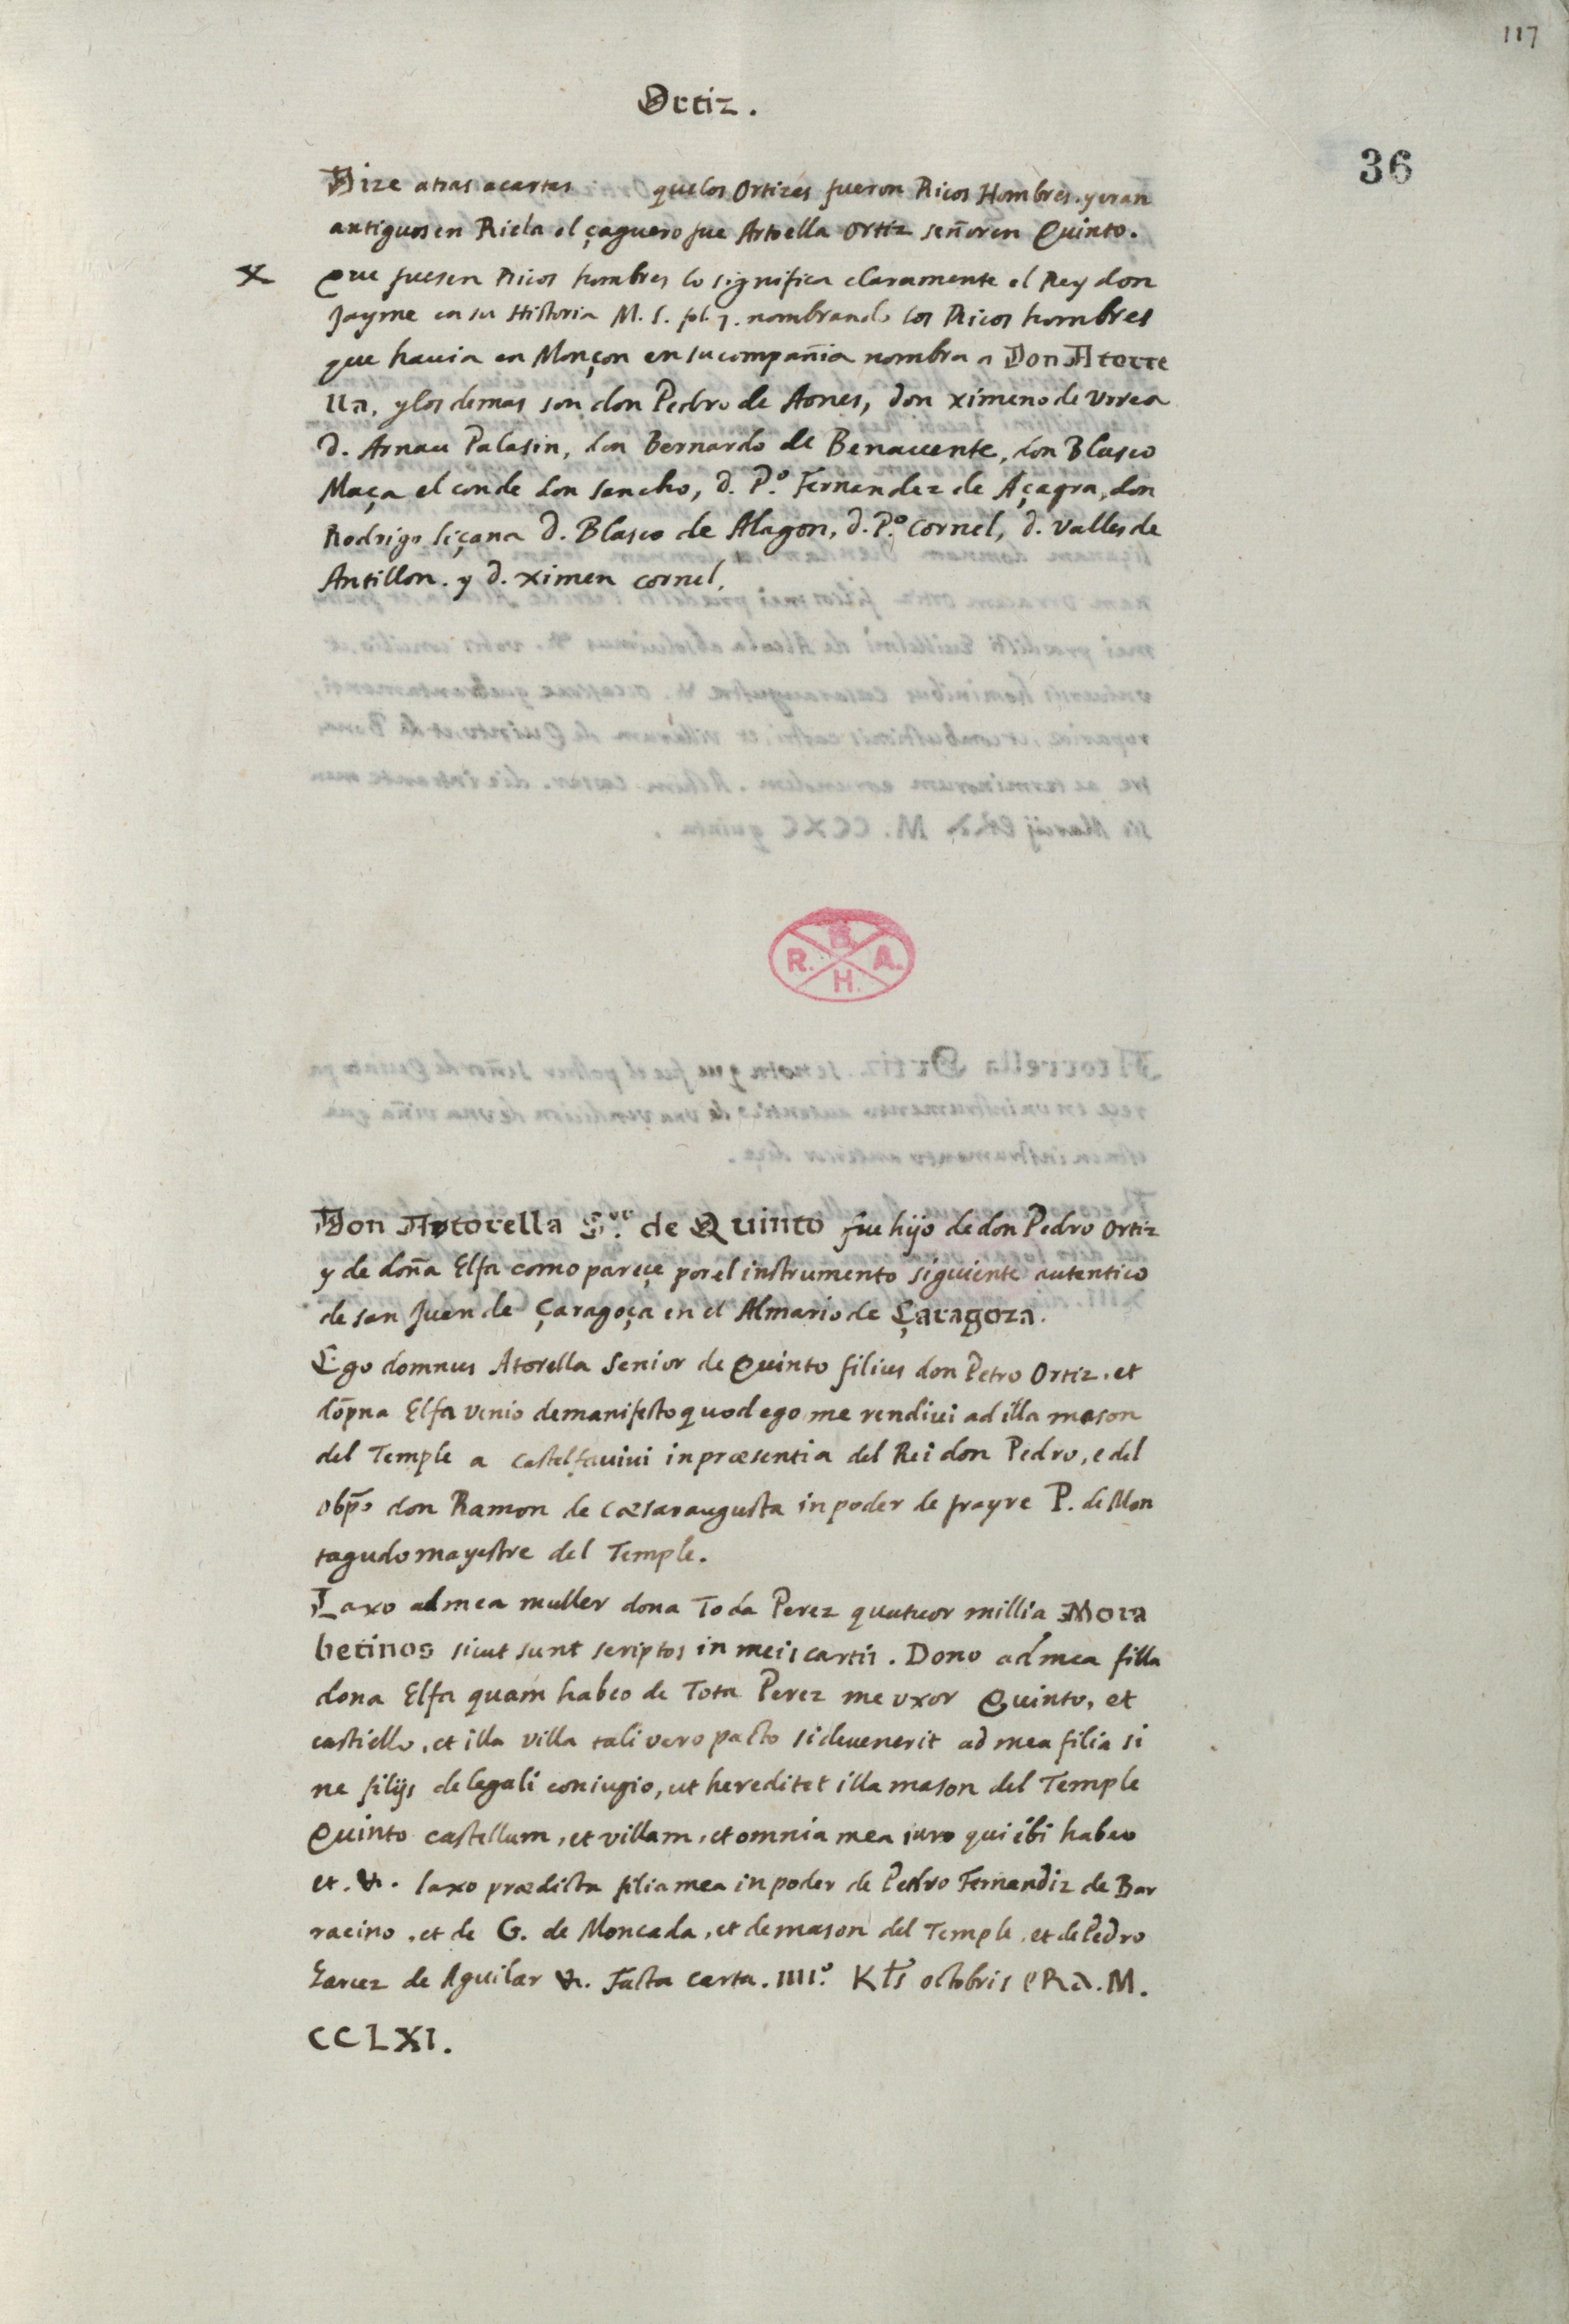 117
36
Ortiz.
Dize atras acartas que los Ortizes fueron Ricos Hombres. y eran
antiguos en Ricla el çaguero fue Artoella Ortiz señor en Quinto.
X Que fuesen Ricos hombres lo significa claramente el Rey don
Jayme en su Historia M. S. fol. 7. nombrando los Ricos hombres
que hauia en Monçon en su compañia nombra a Don Atorre
lla, y los demas son don Pedro de Aones, don ximeno de Vrrea
d. Arnau Palasin, don Bernardo de Benauente, don Blasco
Maça el conde don sancho, d. P.º Fernandez de Açagra, don
Rodrigo liçana d. Blasco de Alagon, d. P.º Cornel, d. Valles de
Antillon. y d. ximen cornel.
R. B. A. H.
Don Atorella S.or de Quinto fue hijo de don Pedro Ortiz
y de doña Elfa como pareçe por el instrumento siguiente autentico
de san Juan de Çaragoça en el Almario de Çaragoza.
Ego domnus Atorella Senior de Quinto filius don Petro Ortiz. et
dop̄na Elfa venio de manifesto quod ego me rendiui ad illa mason
del Temple a castelfauiui in præsentia del Rei don Pedro, e del
obp̄o don Ramon de cæsaraugusta in poder de frayre P. de Mon
tagudo mayestre del Temple.
Laxo ad mea muller dona Toda Perez quatuor millia Mora
betinos sicut sunt scriptos in meis cartis. Dono ad mea filla
dona Elfa quam habeo de Tota Perez me vxor Quinto, et
castiello, et illa villa tali vero pacto si deuenerit ad mea filia si
ne filijs de legali coniugio, ut hereditet illa mason del Temple
Quinto castellum, et villam, et omnia mea iura qui ibi habeo
et. &. laxo prædicta filia mea in poder de Pedro Fernandiz de Bar
racino, et de G. de Moncada, et de mason del Temple, et de Pedro
Garcez de Aguilar &. Facta carta. IIII.º Kl̄s octobris eRa. M.
CCLXI.